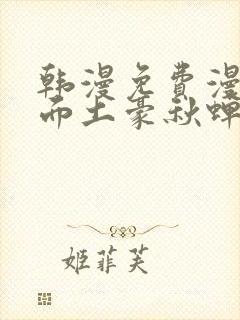 韩漫免费漫
而土豪秋蝉
姬菲芙